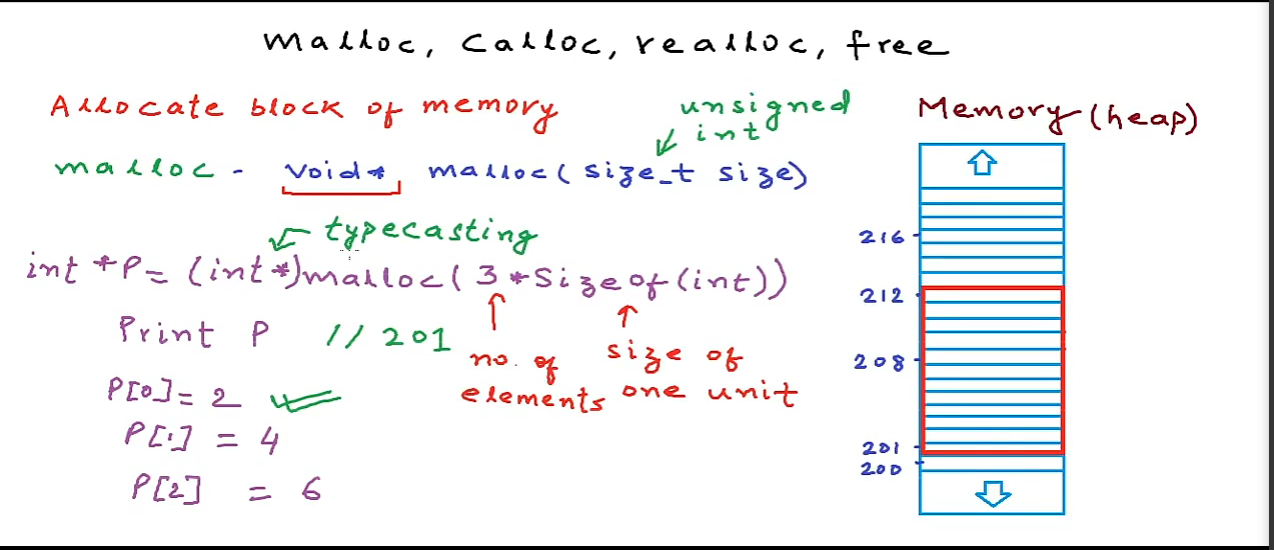 malloc, calloc, realloc, free
Allocate block of memory
unsigned
int
malloc - void* malloc(size_t size)
typecasting
int *P = (int*)malloc(3*sizeof(int))
Print P // 201
no. of
elements
size of
one unit
P[0] = 2
P[1] = 4
P[2] = 6
Memory (heap)
216
212
208
201
200